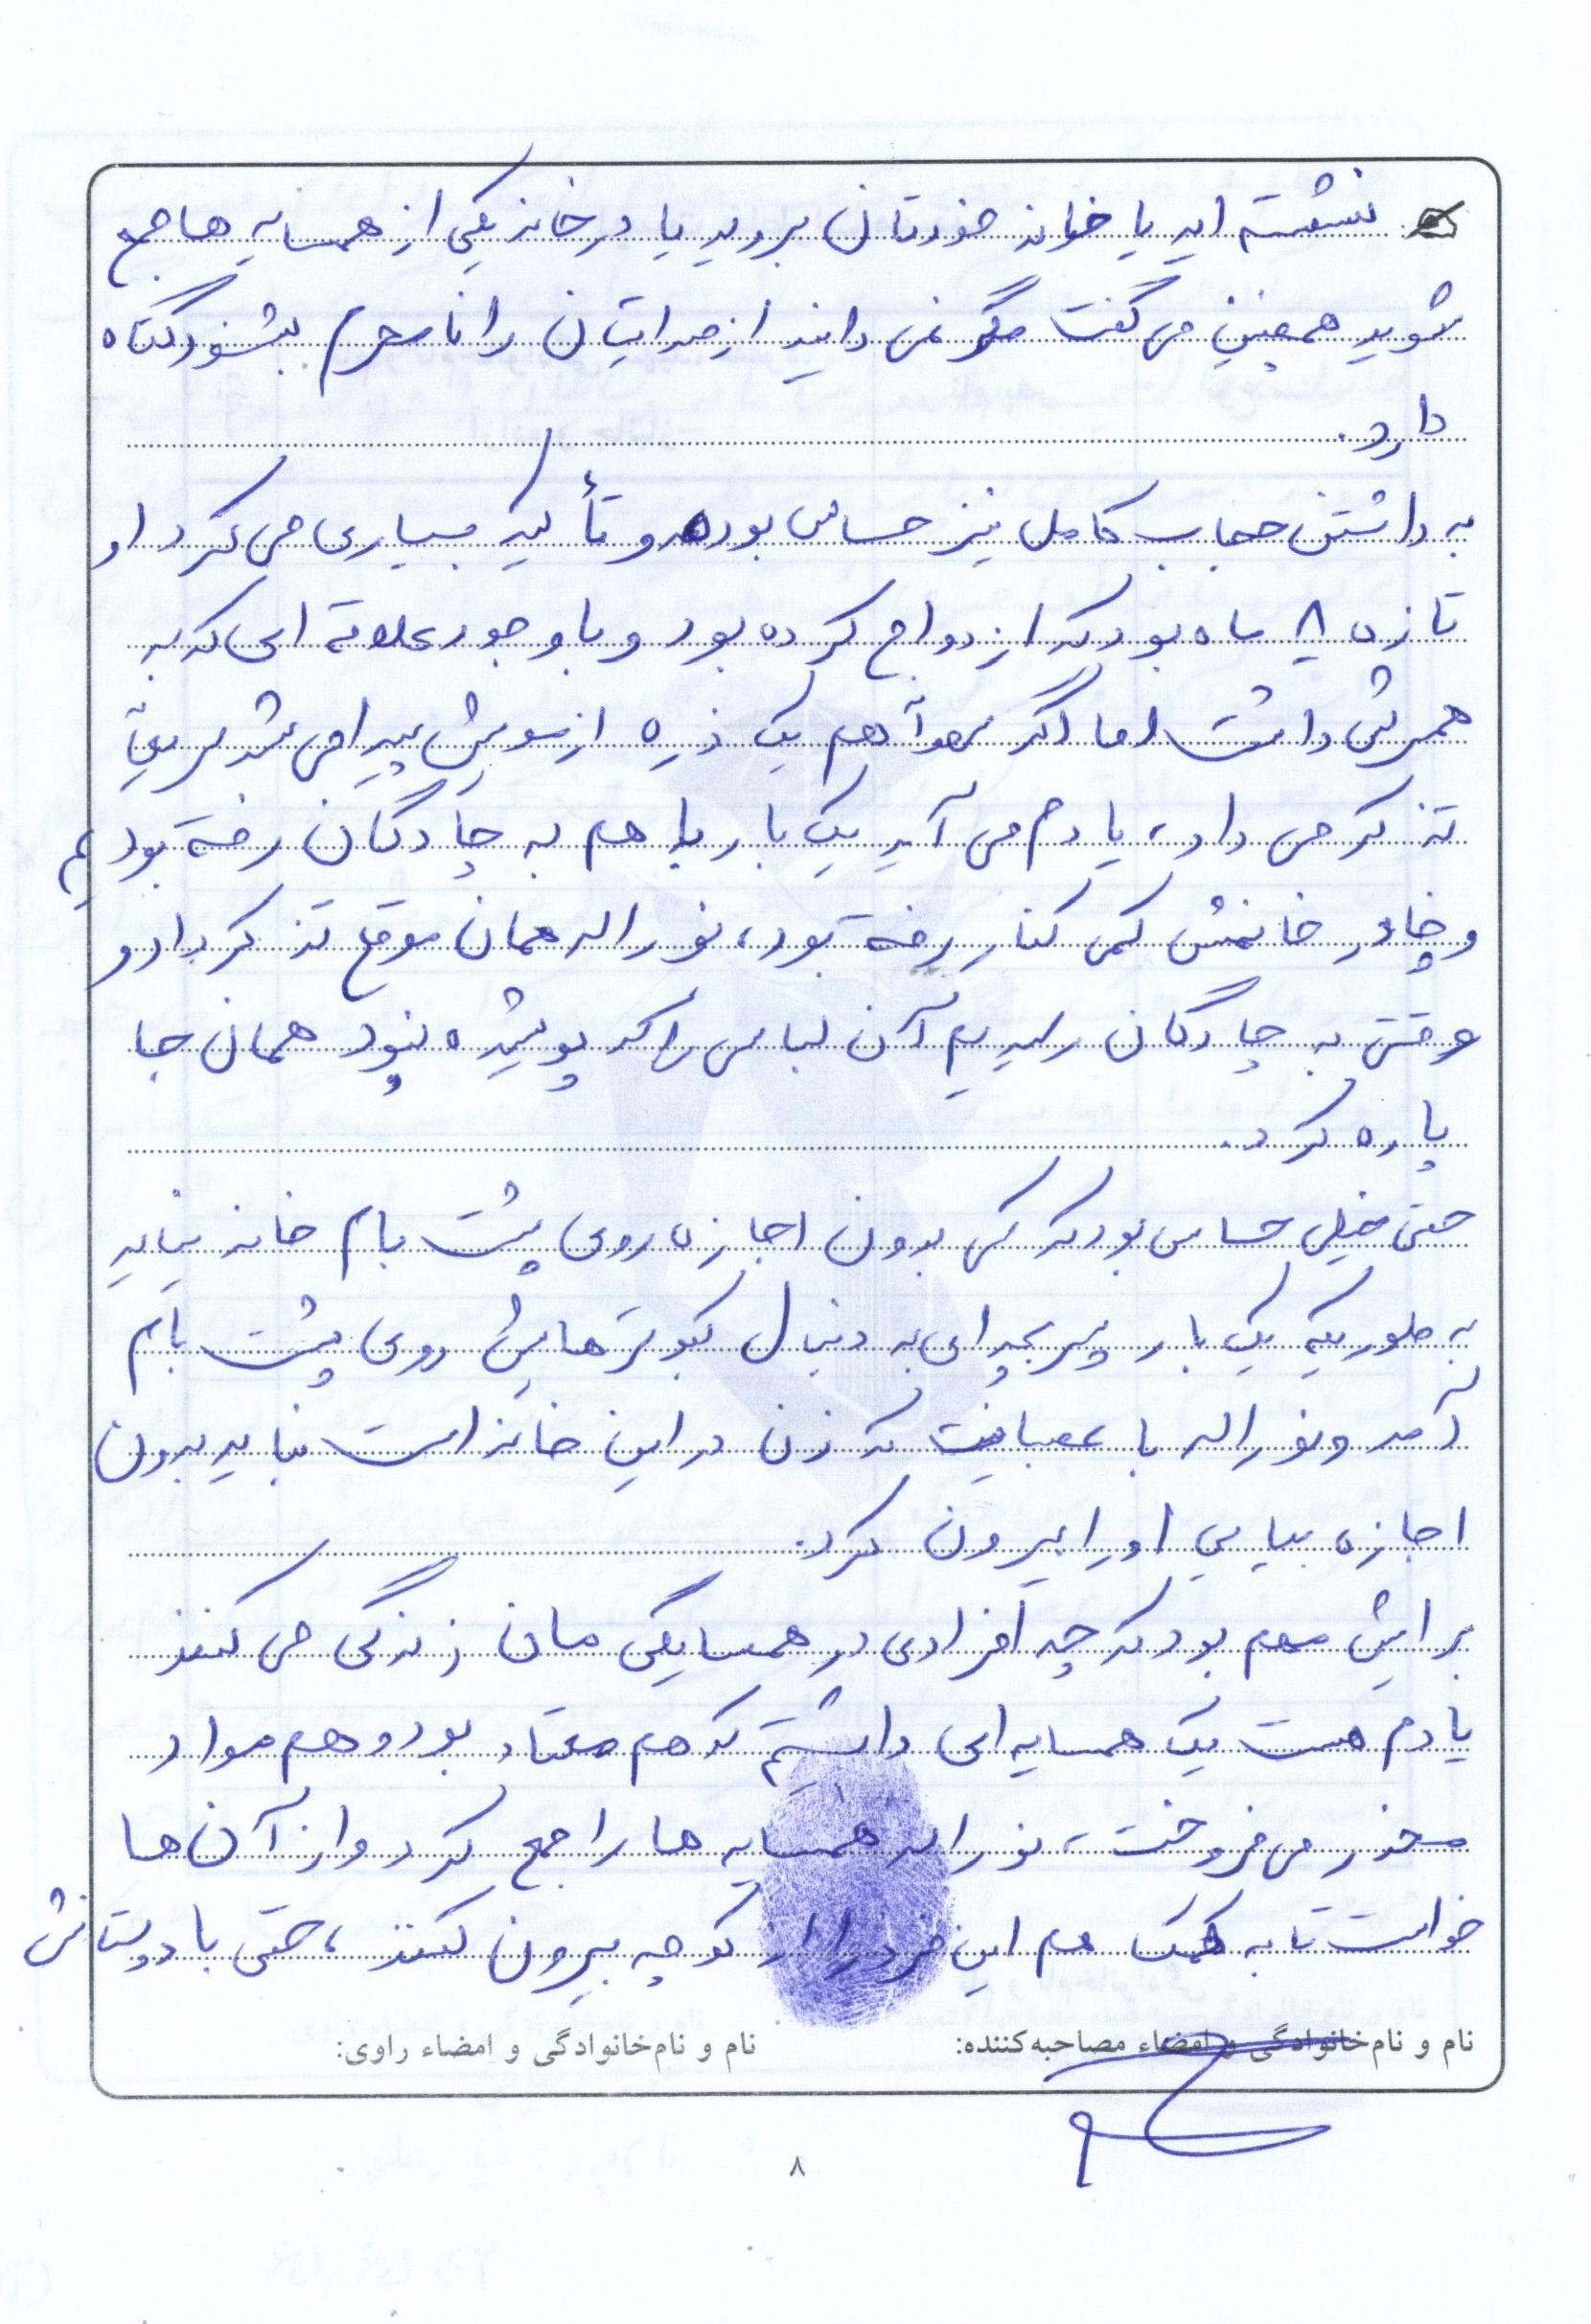 نشسته اید یا خانه خودتان بروید یا در خانه یکی از همسایه ها جمع
شوید همچنین می گفت مگر نمی دانید از صدایتان را نامحرم بشنود گناه
دارد.
به داشتن حجاب کامل نیز حساس بود و تأکید بسیاری می کرد او
تازه ۸ ماه بود که ازدواج کرده بود و با وجود علاقه ای که به
همسرش داشت اما اگر سهوآ هم یک ذره از مویش پیدا می شد سریع
تذکر می داد، یادم می آید یک بار با هم به چادگان رفته بودیم
و چادر خانمش کمی کنار رفته بود، نوراله همان موقع تذکر داد و
وقتی به چادگان رسیدیم آن لباسی را که پوشیده بود همان جا
پاره کرد.
حتی خیلی حساس بود که کسی بدون اجازه روی پشت بام خانه نیاید
به طوریکه یک بار پسر بچه ای به دنبال کبوترهایش روی پشت بام
آمد و نوراله با عصبانیت که زن در این خانه است نباید بدون
اجازه بیایی او را بیرون کرد.
برایش مهم بود که چه افرادی در همسایگی مان زندگی می کنند
یادم هست یک همسایه ای داشتیم که هم معتاد بود و هم مواد
مخدر می فروخت، نوراله همسایه ها را جمع کرد و از آن ها
خواست تا به کمک هم این فرد را از کوچه بیرون کنند، حتی با دوستانش
نام و نام‌خانوادگی و امضاء مصاحبه‌کننده: نام و نام‌خانوادگی و امضاء راوی:
۸